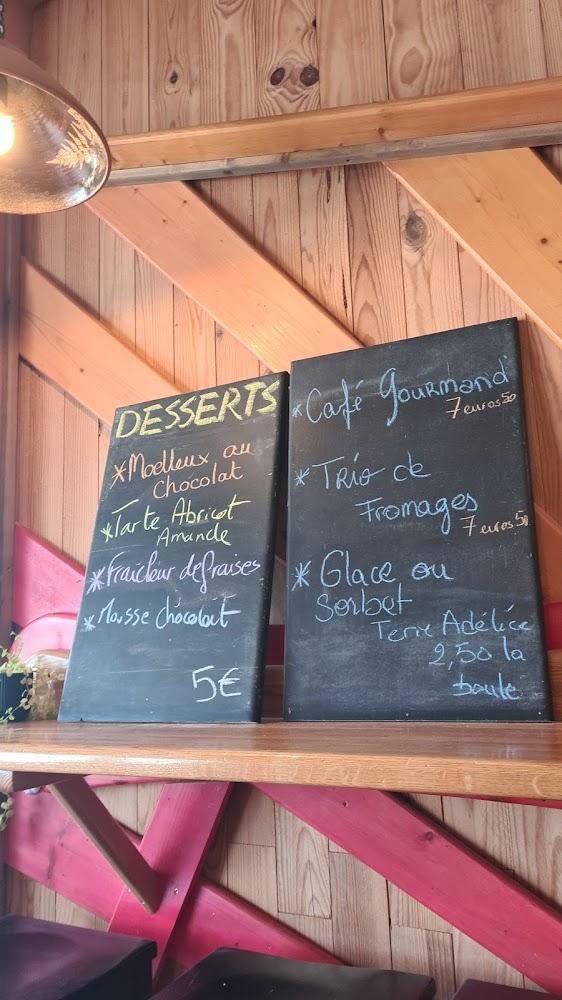 DESSERTS
* Moelleux au
chocolat
* Tarte Abricot
Amande
* Fraicheur de fraises
* Mousse chocolat
5€
* Café Gourmand
7 euros 50
* Trio de
Fromages
7 euros 50
* Glace ou
Sorbet
Terre Adélice
2,50 la
boule